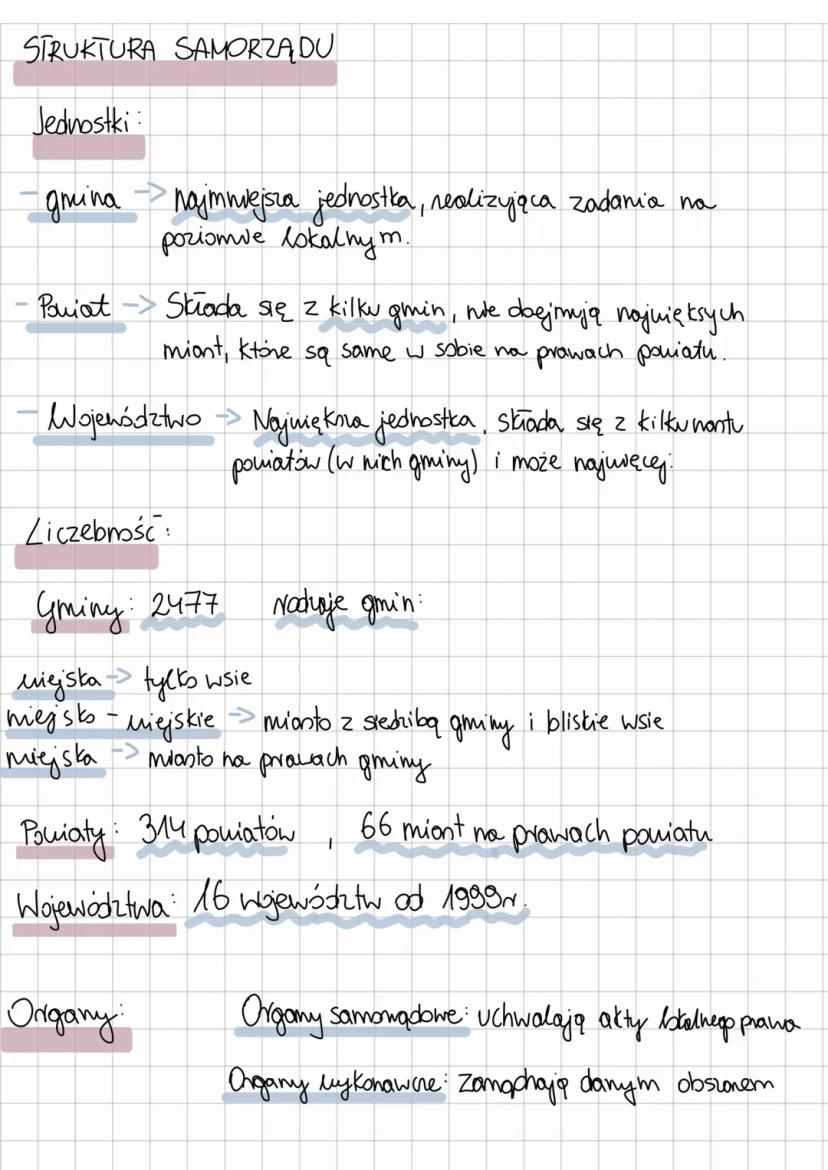 STRUKTURA SAMORZĄDU
Jednostki:
- gmina -> najmniejsza jednostka, realizująca zadania na
poziomie lokalnym.
- Powiat -> Składa się z kilku gmin, nie obejmują największych
miast, które są same w sobie na prawach powiatu.
- Województwo -> Największa jednostka, składa się z kilkunastu
powiatów (w nich gminy) i może najwięcej.
Liczebność:
Gminy: 2477 rodzaje gmin:
wiejska -> tylko wsie
miejsko - wiejskie -> miasto z siedzibą gminy i bliskie wsie
miejska -> miasto na prawach gminy
Powiaty: 314 powiatów , 66 miast na prawach powiatu
Województwa: 16 województw od 1999r.
Organy: Organy samorządowe: uchwalają akty lokalnego prawa
Organy wykonawcze: zarządzają danym obszarem